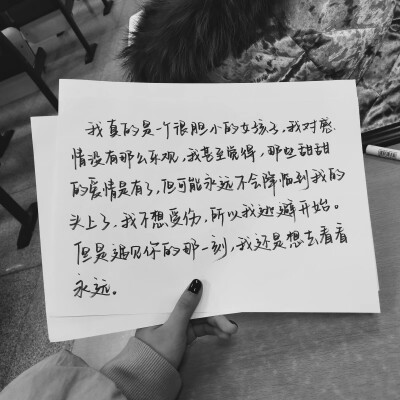 我真的是一个很胆小的女孩子,我对感
情没有那么乐观,我甚至觉得,那些甜甜
的爱情是有了,但可能永远不会降临到我的
头上了,我不想受伤,所以我逃避开始。
但是遇见你的那一刻,我还是想去看看
永远。